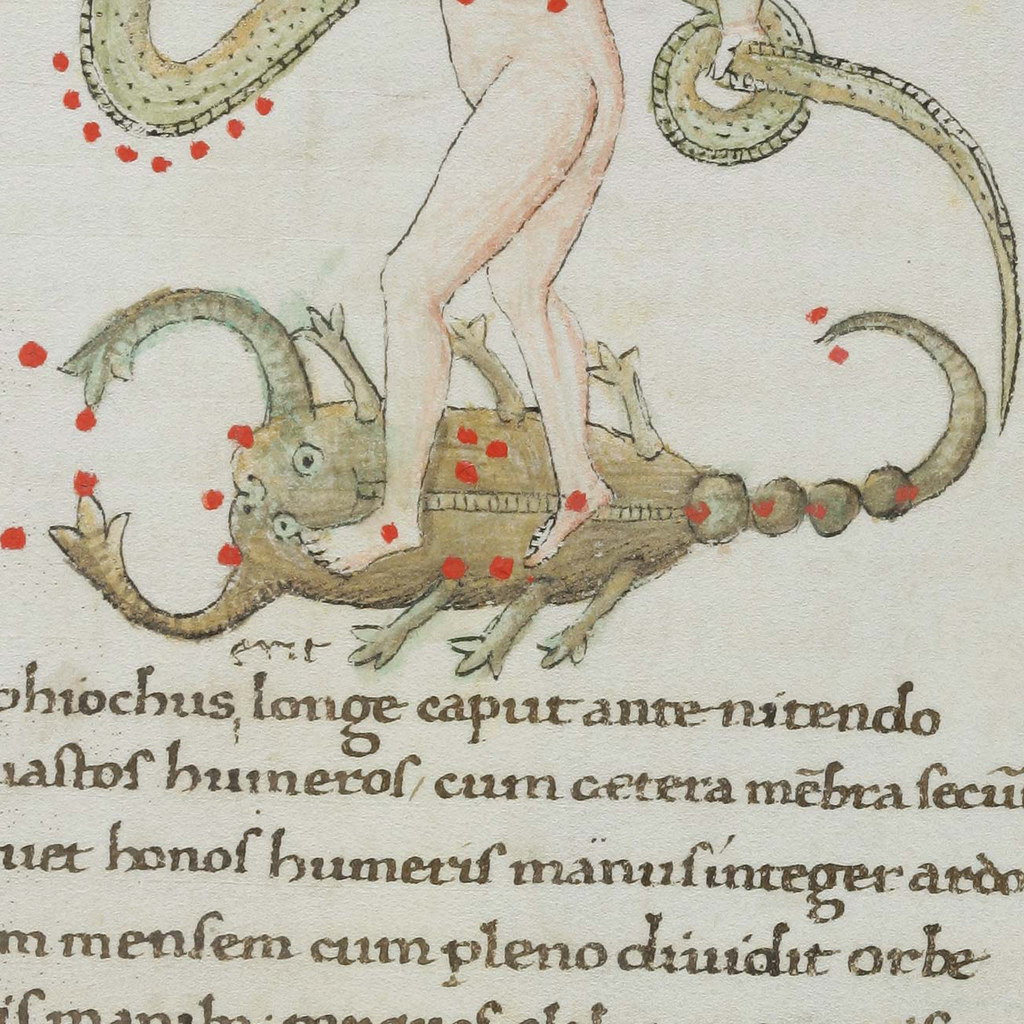 erit
phiochus, longe caput ante nitendo
uastos humeros, cum cetera mēbra secū
uet honos humeris manus integer ardo
m mensem cum pleno diuidit orbe
is manib;